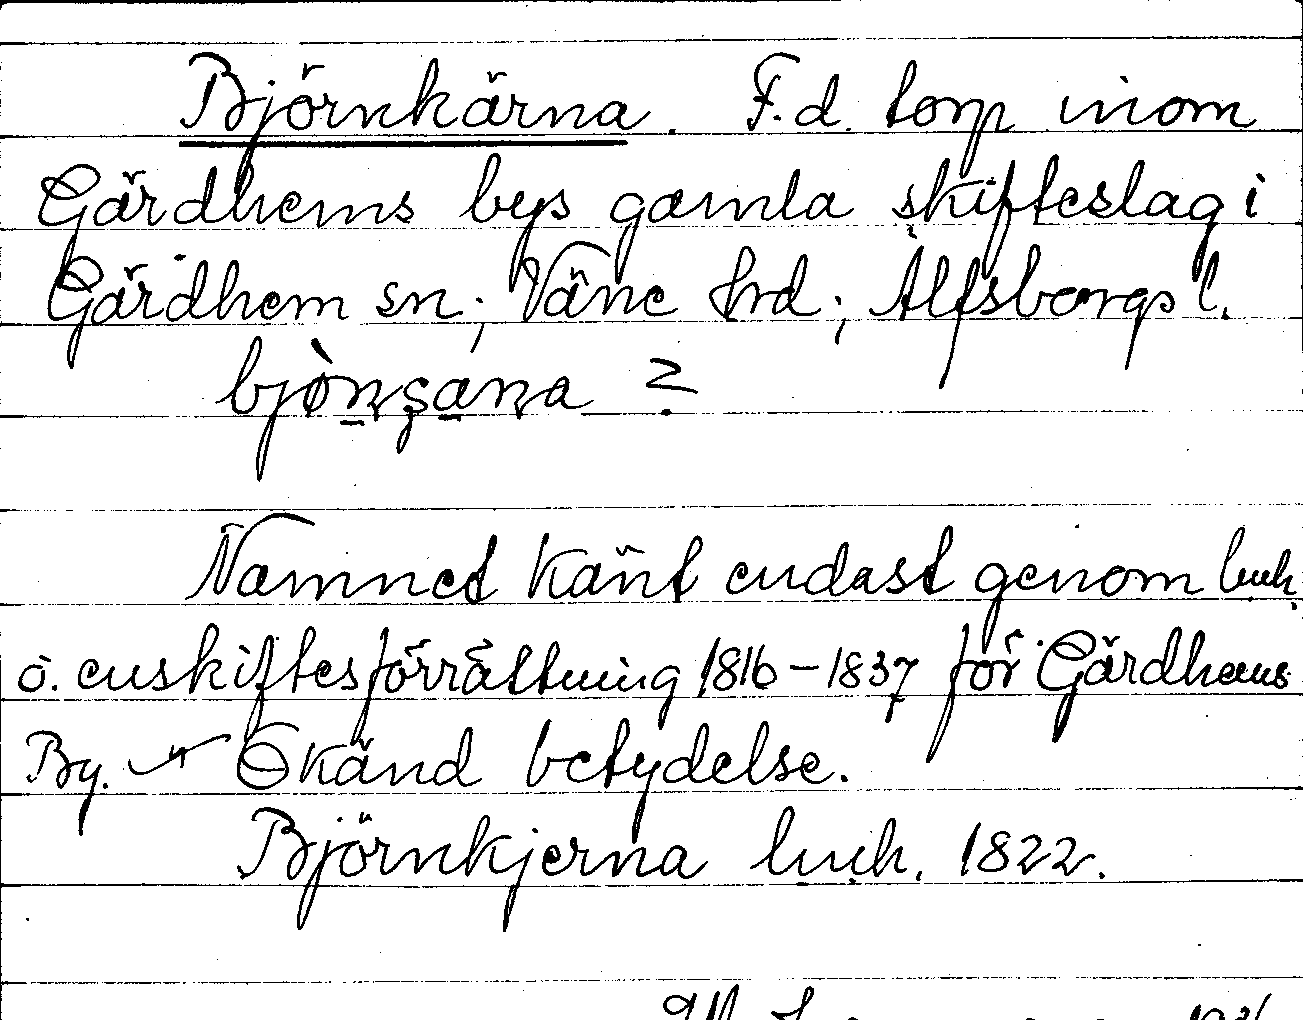 Björnkärna. F.d. torp inom
Gärdhems bys gamla skifteslag i
Gärdhem sn; Väne hrd; Älfsborgs l.
bjònşaṉa ?
Namnet känt endast genom hush.
o. enskiftesförrättning 1816–1837 för Gärdhems
By. Okänd betydelse.
Björnkjerna hush. 1822.